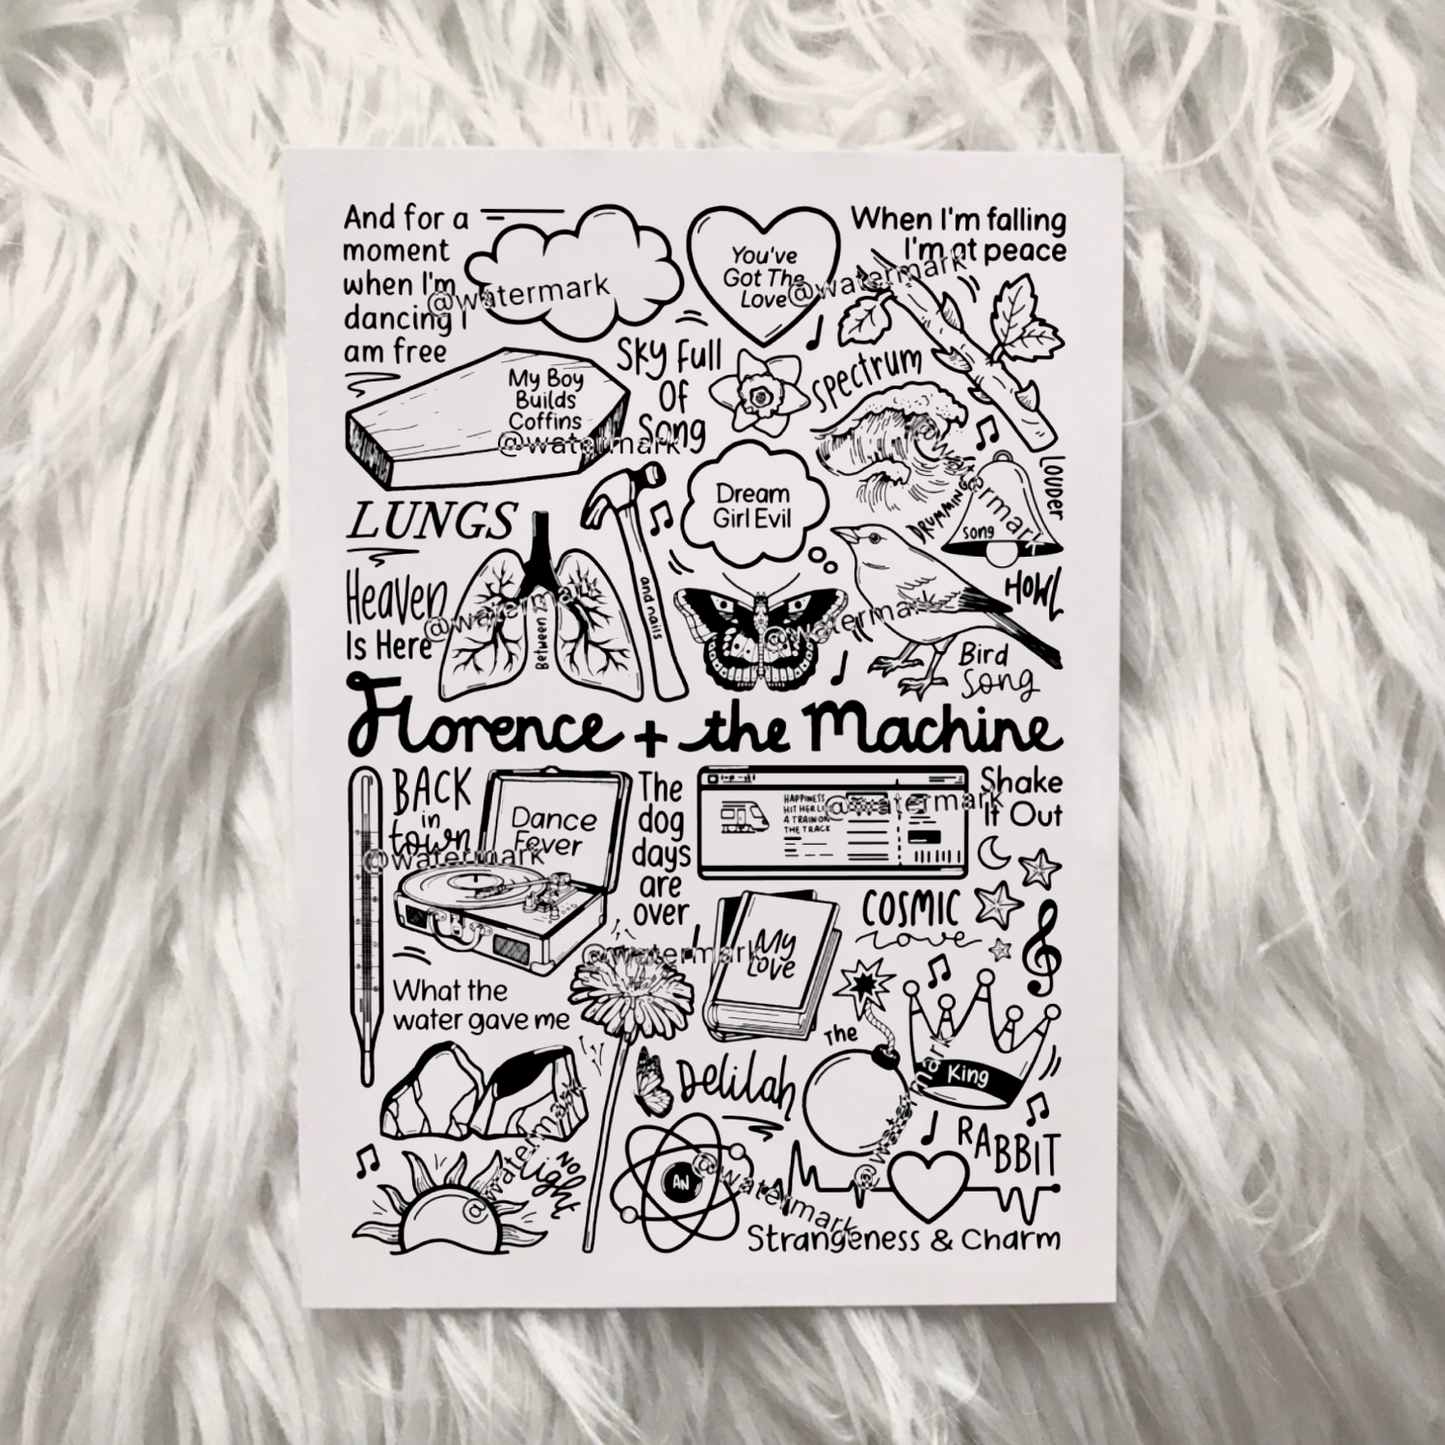 And for a
moment
when I'm
dancing I
am free
You've
Got The
Love
When I'm falling
I'm at peace
My Boy
Builds
Coffins
Sky Full
Of
Song
Spectrum
LUNGS
Dream
Girl Evil
DRUMMING
Song
LOUDER
Heaven
Is Here
Between 2
and nails
HOWL
Bird
Song
Florence + the Machine
BACK
in
town
Dance
Fever
The
dog
days
are
over
HAPPINESS
HIT HER LI
A TRAIN ON
THE TRACK
Shake
It Out
COSMIC
Love
My
Love
What the
water gave me
The
King
Delilah
RABBIT
NO
Light
AN
Strangeness & Charm
@watermark
@watermark
@watermark
@watermark
@watermark
@watermark
@watermark
@watermark
@watermark
@watermark
@watermark
@watermark
@watermark